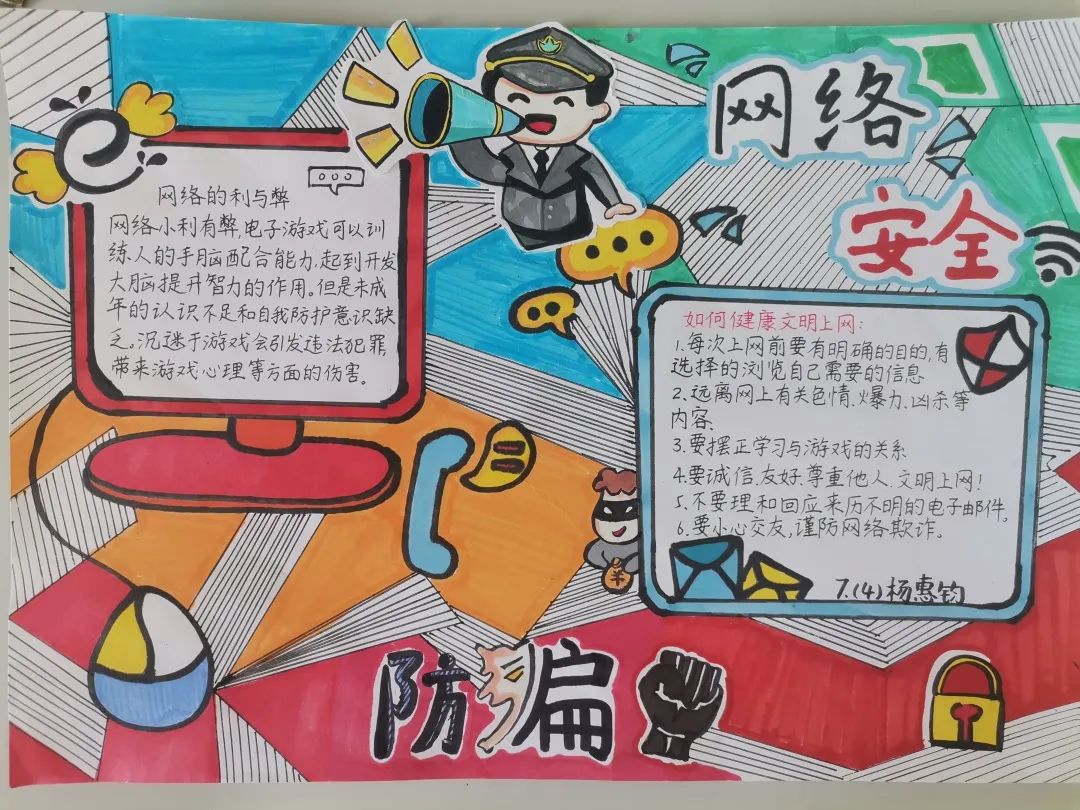 网络
安全
网络的利与弊
网络小利有弊,电子游戏可以训
练人的手脑配合能力,起到开发
大脑提升智力的作用。但是未成
年的认识不足和自我防护意识缺
乏。况迷于游戏会引发违法犯罪,
带来游戏心理等方面的伤害。
如何健康文明上网:
1.每次上网前要有明确的目的,有
选择的浏览自己需要的信息
2.远离网上有关色情、爆力、凶杀等
内容.
3.要摆正学习与游戏的关系
4.要诚信.友好.尊重他人.文明上网!
5.不要理和回应来历不明的电子邮件。
6.要小心交友,谨防网络欺诈。
7.(4)杨惠钧
防骗